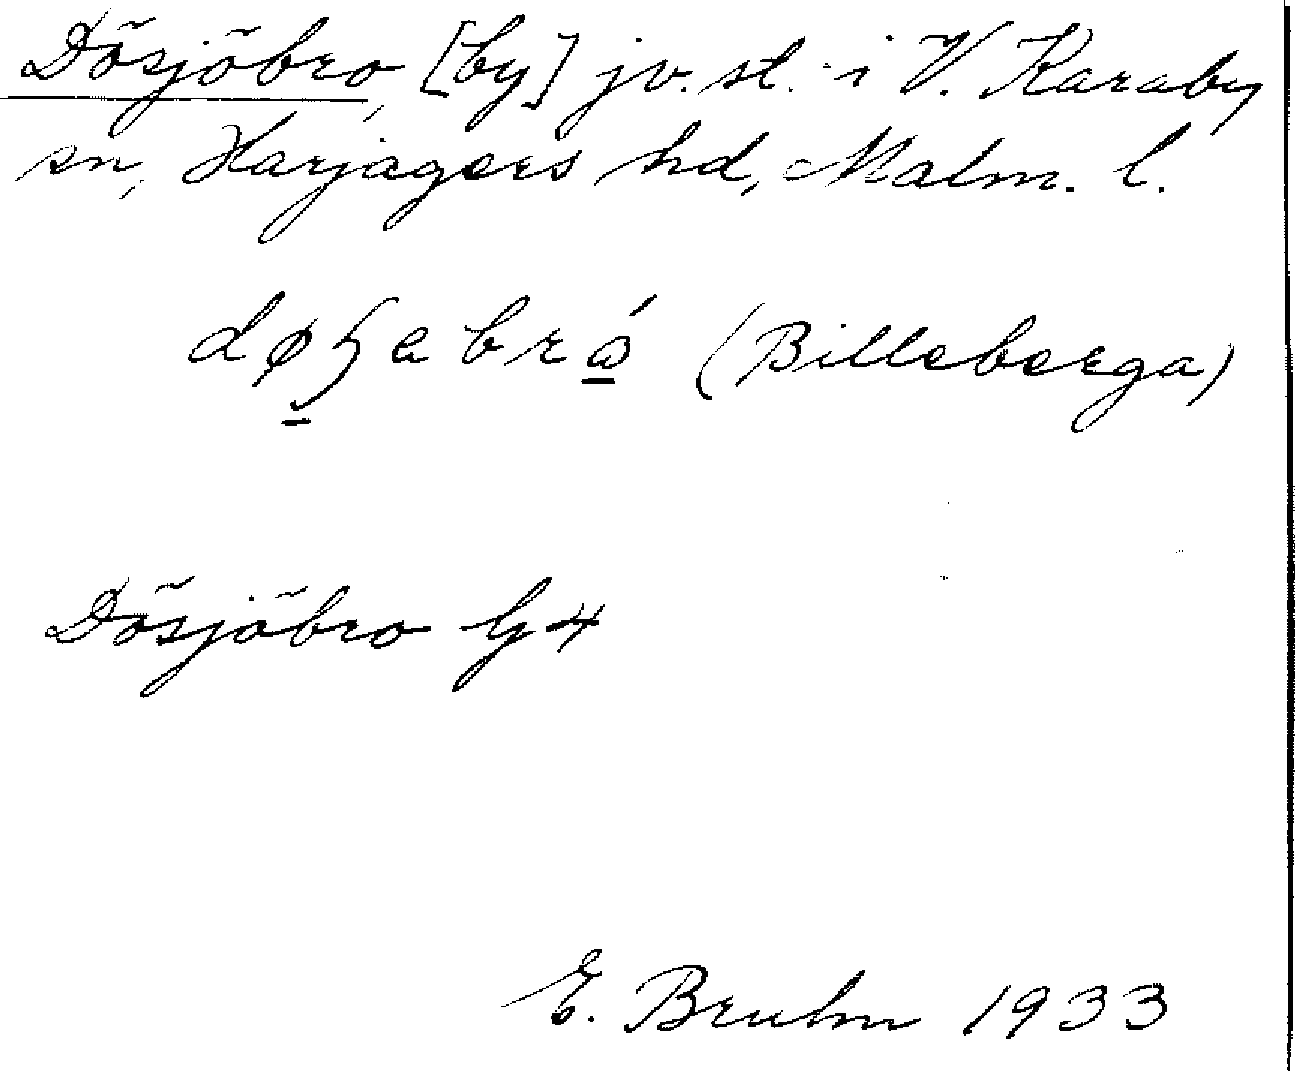 Dösjöbro, [by] jv. st. i V. Karaby
sn, Harjagers hd, Malm. l.
(Billeberga)
Dösjöbro G4
E. Bruhn 1933